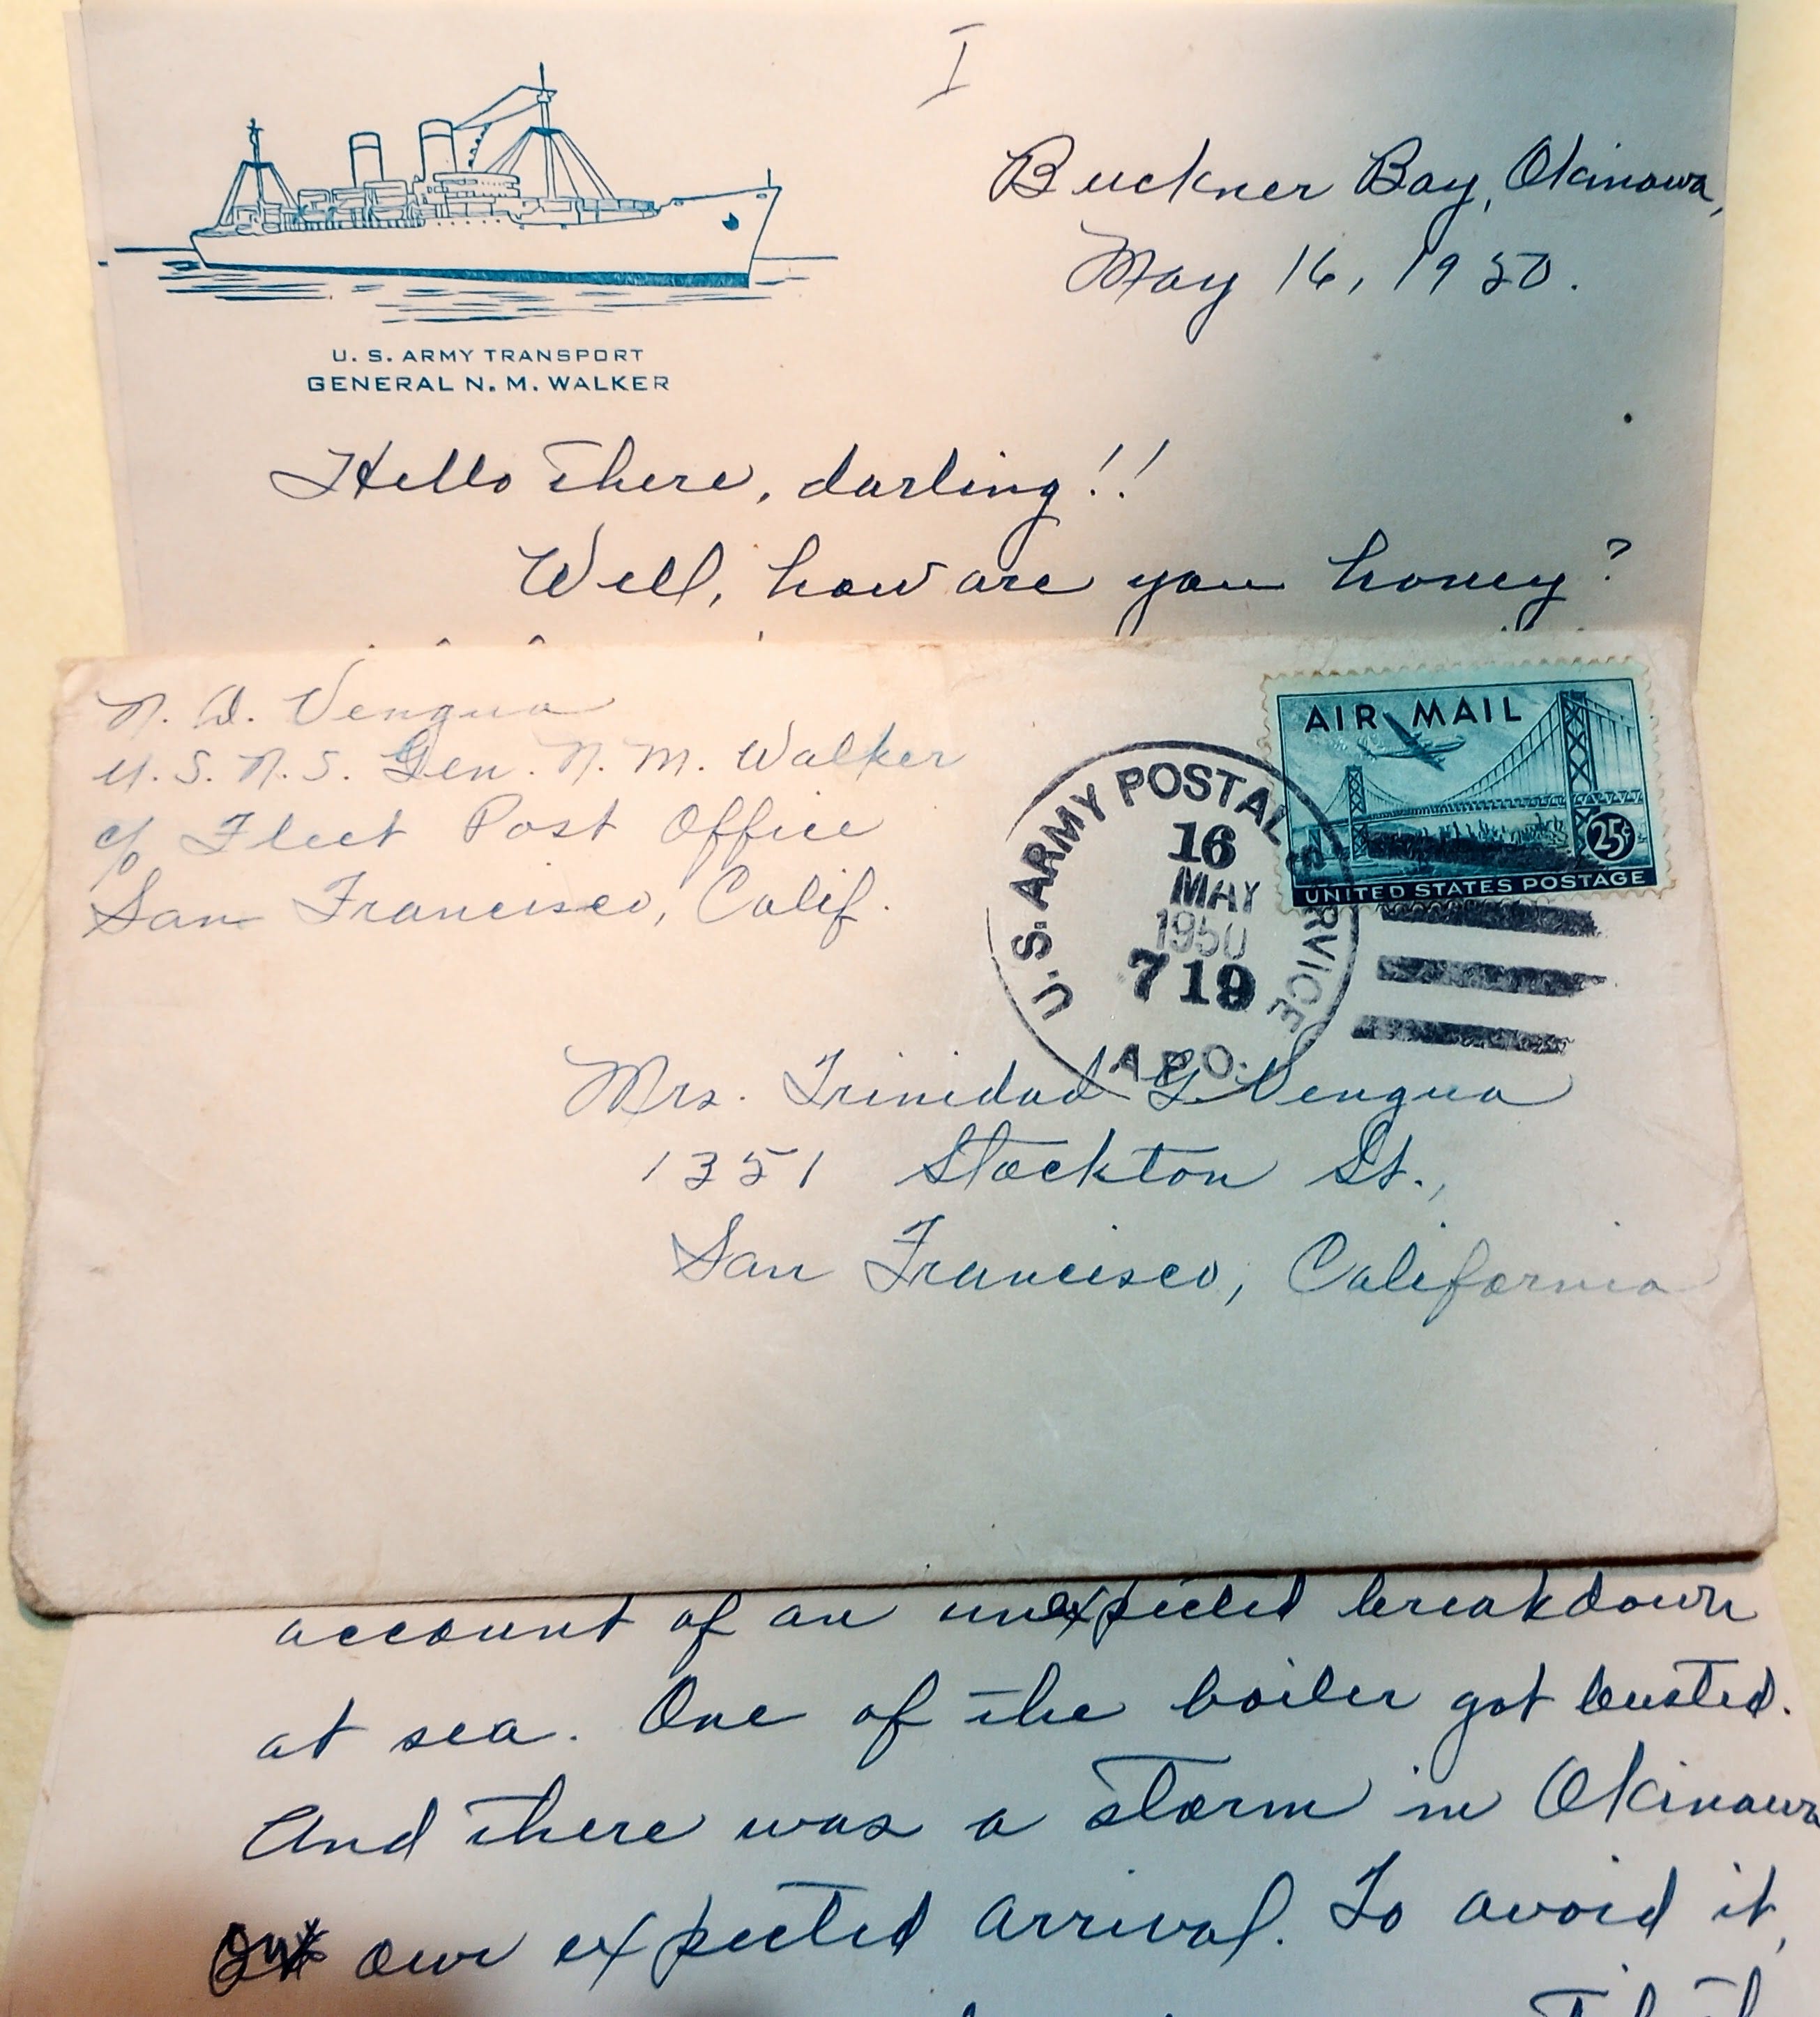 I
Buckner Bay, Okinawa,
May 16, 1950.
U. S. ARMY TRANSPORT
GENERAL N. M. WALKER
Hello there, darling!!
Well, how are you honey?
N. D. Vengua
U.S.N.S. Gen. N. M. Walker
c/o Fleet Post Office
San Francisco, Calif.
AIR MAIL
25¢
UNITED STATES POSTAGE
U.S. ARMY POSTAL SERVICE
16
MAY
1950
719
A.P.O.
Mrs. Trinidad G. Vengua
1351 Stockton St.,
San Francisco, California
account of an unexpected breakdown
at sea. One of the boiler got busted.
And there was a storm in Okinawa
our expected arrival. To avoid it,